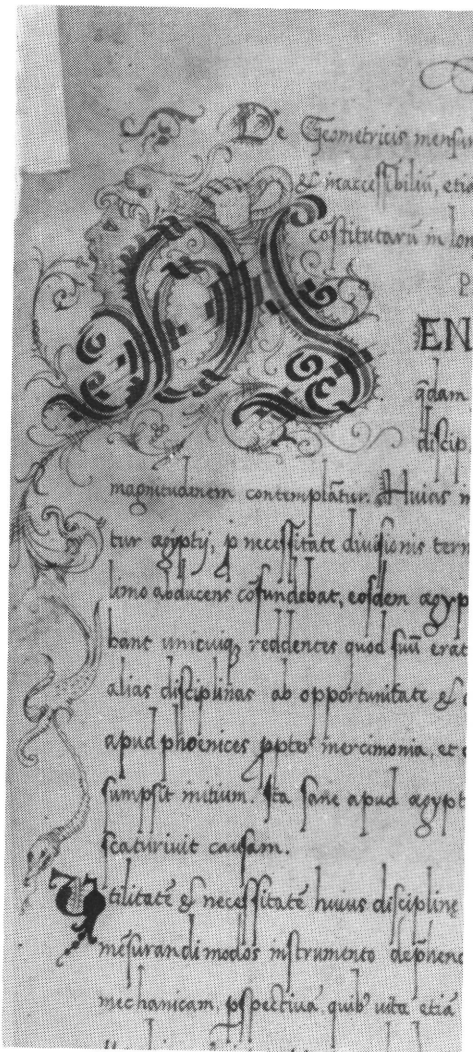 De Geometricis mensur
& inaccessibiliũ, etia
cõstitutarũ in lon
P
MENS
q̃dam
discip
magnitudinem contemplãtur. Huius in
tur ægyptij, p necessitate diuisionis term
limo abducens cõfundebat, eosdem ægyp
bant unicuiq; reddentes quod suũ erat
alias disciplinas ab opportunitate & c
apud phoenices ppter mercimonia, et
sumpsit initium. Ita sane apud ægypt
scaturiuit causam.
Utilitatẽ & necessitatẽ huius discipline
mẽsurandi modos instrumento
mechanicam, pspectiuã, quib' uita etiã